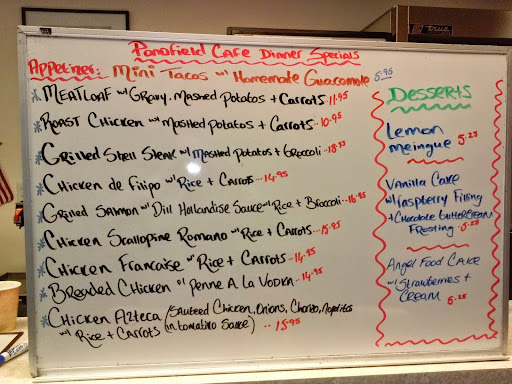 Ponofield Cafe Dinner Specials
Appetizer: Mini Tacos w/ Homemade Guacamole 5.95
* MEATLOAF w/ Gravy, Mashed Potatos + Carrots 11.95
* Roast Chicken w/ Mashed Potatos + Carrots.. 10.95
* Grilled Shell Steak w/ Mashed Potatos + Broccoli.. 18.95
* Chicken de Filipo w/ Rice + Carrots... 14.95
* Grilled Salmon w/ Dill Hollandise Sauce w/ Rice + Broccoli.. 16.95
* Chicken Scallopine Romano w/ Rice + Carrots... 15.95
* Chicken Francaise w/ Rice + Carrots.. 14.95
* Breaded Chicken w/ Penne A La Vodka.. 14.95
* Chicken Azteca (Sauteed Chicken, Onions, Chorizo, Nopalitos
w/ Rice + Carrots in tomatillo Sauce) .. 15.95
Desserts
Lemon
meingue 5.25
Vanilla Cake
w/ raspberry Filling
+ Chocolate buttercream
Frosting. 5.25
Angel Food Cake
w/ Strawberries +
Cream 5.25
true